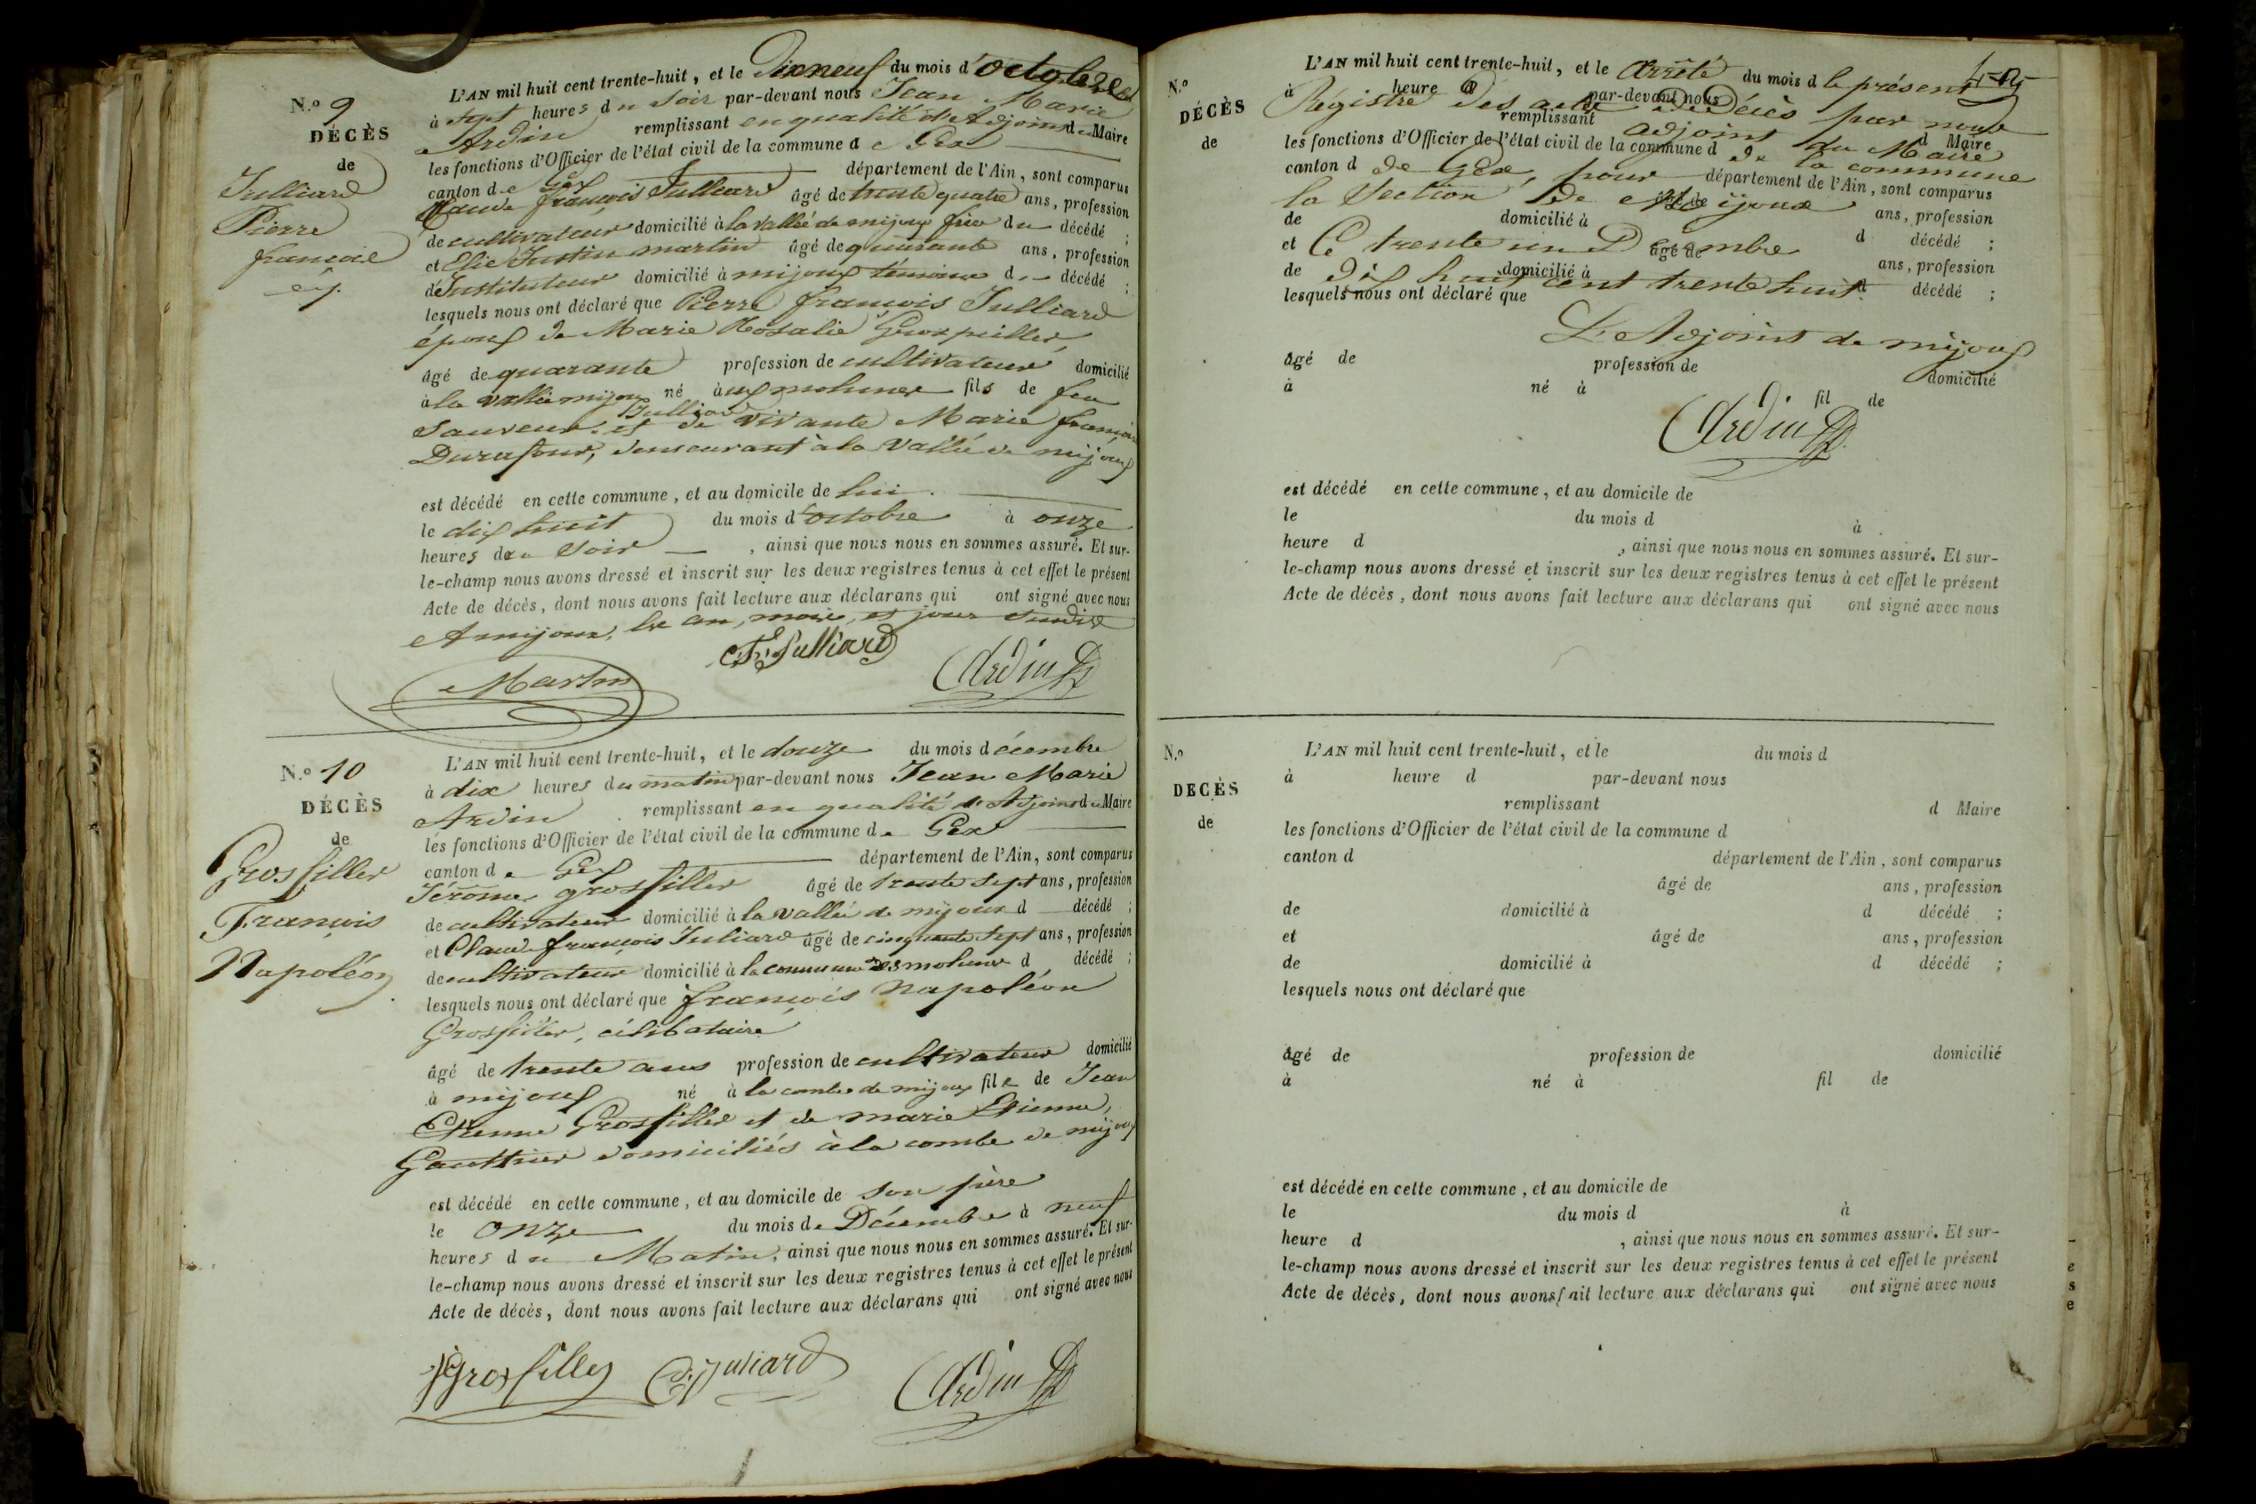 N.o 9
DÉCÈS
de
Julliard
Pierre
françois
L'AN mil huit cent trente-huit, et le Dixneuf du mois d'octobre
à sept heures du soir par-devant nous Jean Marie
Ardin remplissant en qualité d'Adjoint du Maire
les fonctions d'Officier de l'état civil de la commune de Gex
canton de Gex département de l'Ain, sont comparus
Claude françois Julliard âgé de trente quatre ans, profession
de cultivateur domicilié à la vallée de mijoux frère du décédé ;
et Elie Justin martin âgé de quarante ans, profession
d'Instituteur domicilié à mijoux témoin du décédé ;
lesquels nous ont déclaré que Pierre françois Julliard
époux de Marie Rosalie Grospiller,
âgé de quarante profession de cultivateur domicilié
à la vallée mijoux né aux molunes fils de feu
Sauveur Julliard et de vivante Marie françoise
Durafour, demeurant à la vallée de mijoux
est décédé en cette commune, et au domicile de lui.
le dix huit du mois d'octobre à onze
heures du Soir, ainsi que nous nous en sommes assuré. Et sur-
le-champ nous avons dressé et inscrit sur les deux registres tenus à cet effet le présent
Acte de décès, dont nous avons fait lecture aux déclarans qui ont signé avec nous
A mijoux, les an, mois, et jour susdit
Martin C. F. Julliard Ardin
N.o 10
DÉCÈS
de
Grosfiller
François
Napoléon
L'AN mil huit cent trente-huit, et le douze du mois décembre
à dix heures du matin par-devant nous Jean Marie
Ardin remplissant en qualité de Adjoint du Maire
les fonctions d'Officier de l'état civil de la commune de Gex
canton de Gex département de l'Ain, sont comparus
Jérome grosfiller âgé de trente sept ans, profession
de cultivateur domicilié à la vallée de mijoux d décédé ;
et Claude françois Juliard âgé de cinquante sept ans, profession
de cultivateur domicilié à la commune des molunes d décédé ;
lesquels nous ont déclaré que françois Napoléon
Grosfiller, célibataire
âgé de trente ans profession de cultivateur domicilié
à mijoux né à la combe de mijoux fils de Jean
Etienne Grosfiller et de marie Etienne,
Gauthier domiciliés à la combe de mijoux
est décédé en cette commune, et au domicile de son père
le onze du mois de Décembre à neuf
heures du Matin, ainsi que nous nous en sommes assuré. Et sur-
le-champ nous avons dressé et inscrit sur les deux registres tenus à cet effet le présent
Acte de décès, dont nous avons fait lecture aux déclarans qui ont signé avec nous
J Grosfiller C. f. Juliard Ardin
N.o
DÉCÈS
de
L'AN mil huit cent trente-huit, et le Arrêté du mois d le présent
à heure d par-devant nous
Régistre des actes de Décès par nous
remplissant adjoint du Maire d Maire
les fonctions d'Officier de l'état civil de la commune d de la commune
canton d de Gex, pour département de l'Ain, sont comparus
la Section de Mijoux âgé de ans, profession
de domicilié à d décédé ;
et Ce trente un Décembre âgé de ans, profession
de domicilié à d décédé ;
dix huit cent trente huit.
lesquels nous ont déclaré que
L'Adjoint de mijoux
âgé de profession de domicilié
à né à fil de
Ardin
est décédé en cette commune, et au domicile de
le du mois d à
heure d , ainsi que nous nous en sommes assuré. Et sur-
le-champ nous avons dressé et inscrit sur les deux registres tenus à cet effet le présent
Acte de décès, dont nous avons fait lecture aux déclarans qui ont signé avec nous
N.o
DÉCÈS
de
L'AN mil huit cent trente-huit, et le du mois d
à heure d par-devant nous
remplissant d Maire
les fonctions d'Officier de l'état civil de la commune d
canton d département de l'Ain, sont comparus
âgé de ans, profession
de domicilié à d décédé ;
et âgé de ans, profession
de domicilié à d décédé ;
lesquels nous ont déclaré que
âgé de profession de domicilié
à né à fil de
est décédé en cette commune, et au domicile de
le du mois d à
heure d , ainsi que nous nous en sommes assuré. Et sur-
le-champ nous avons dressé et inscrit sur les deux registres tenus à cet effet le présent
Acte de décès, dont nous avons fait lecture aux déclarans qui ont signé avec nous